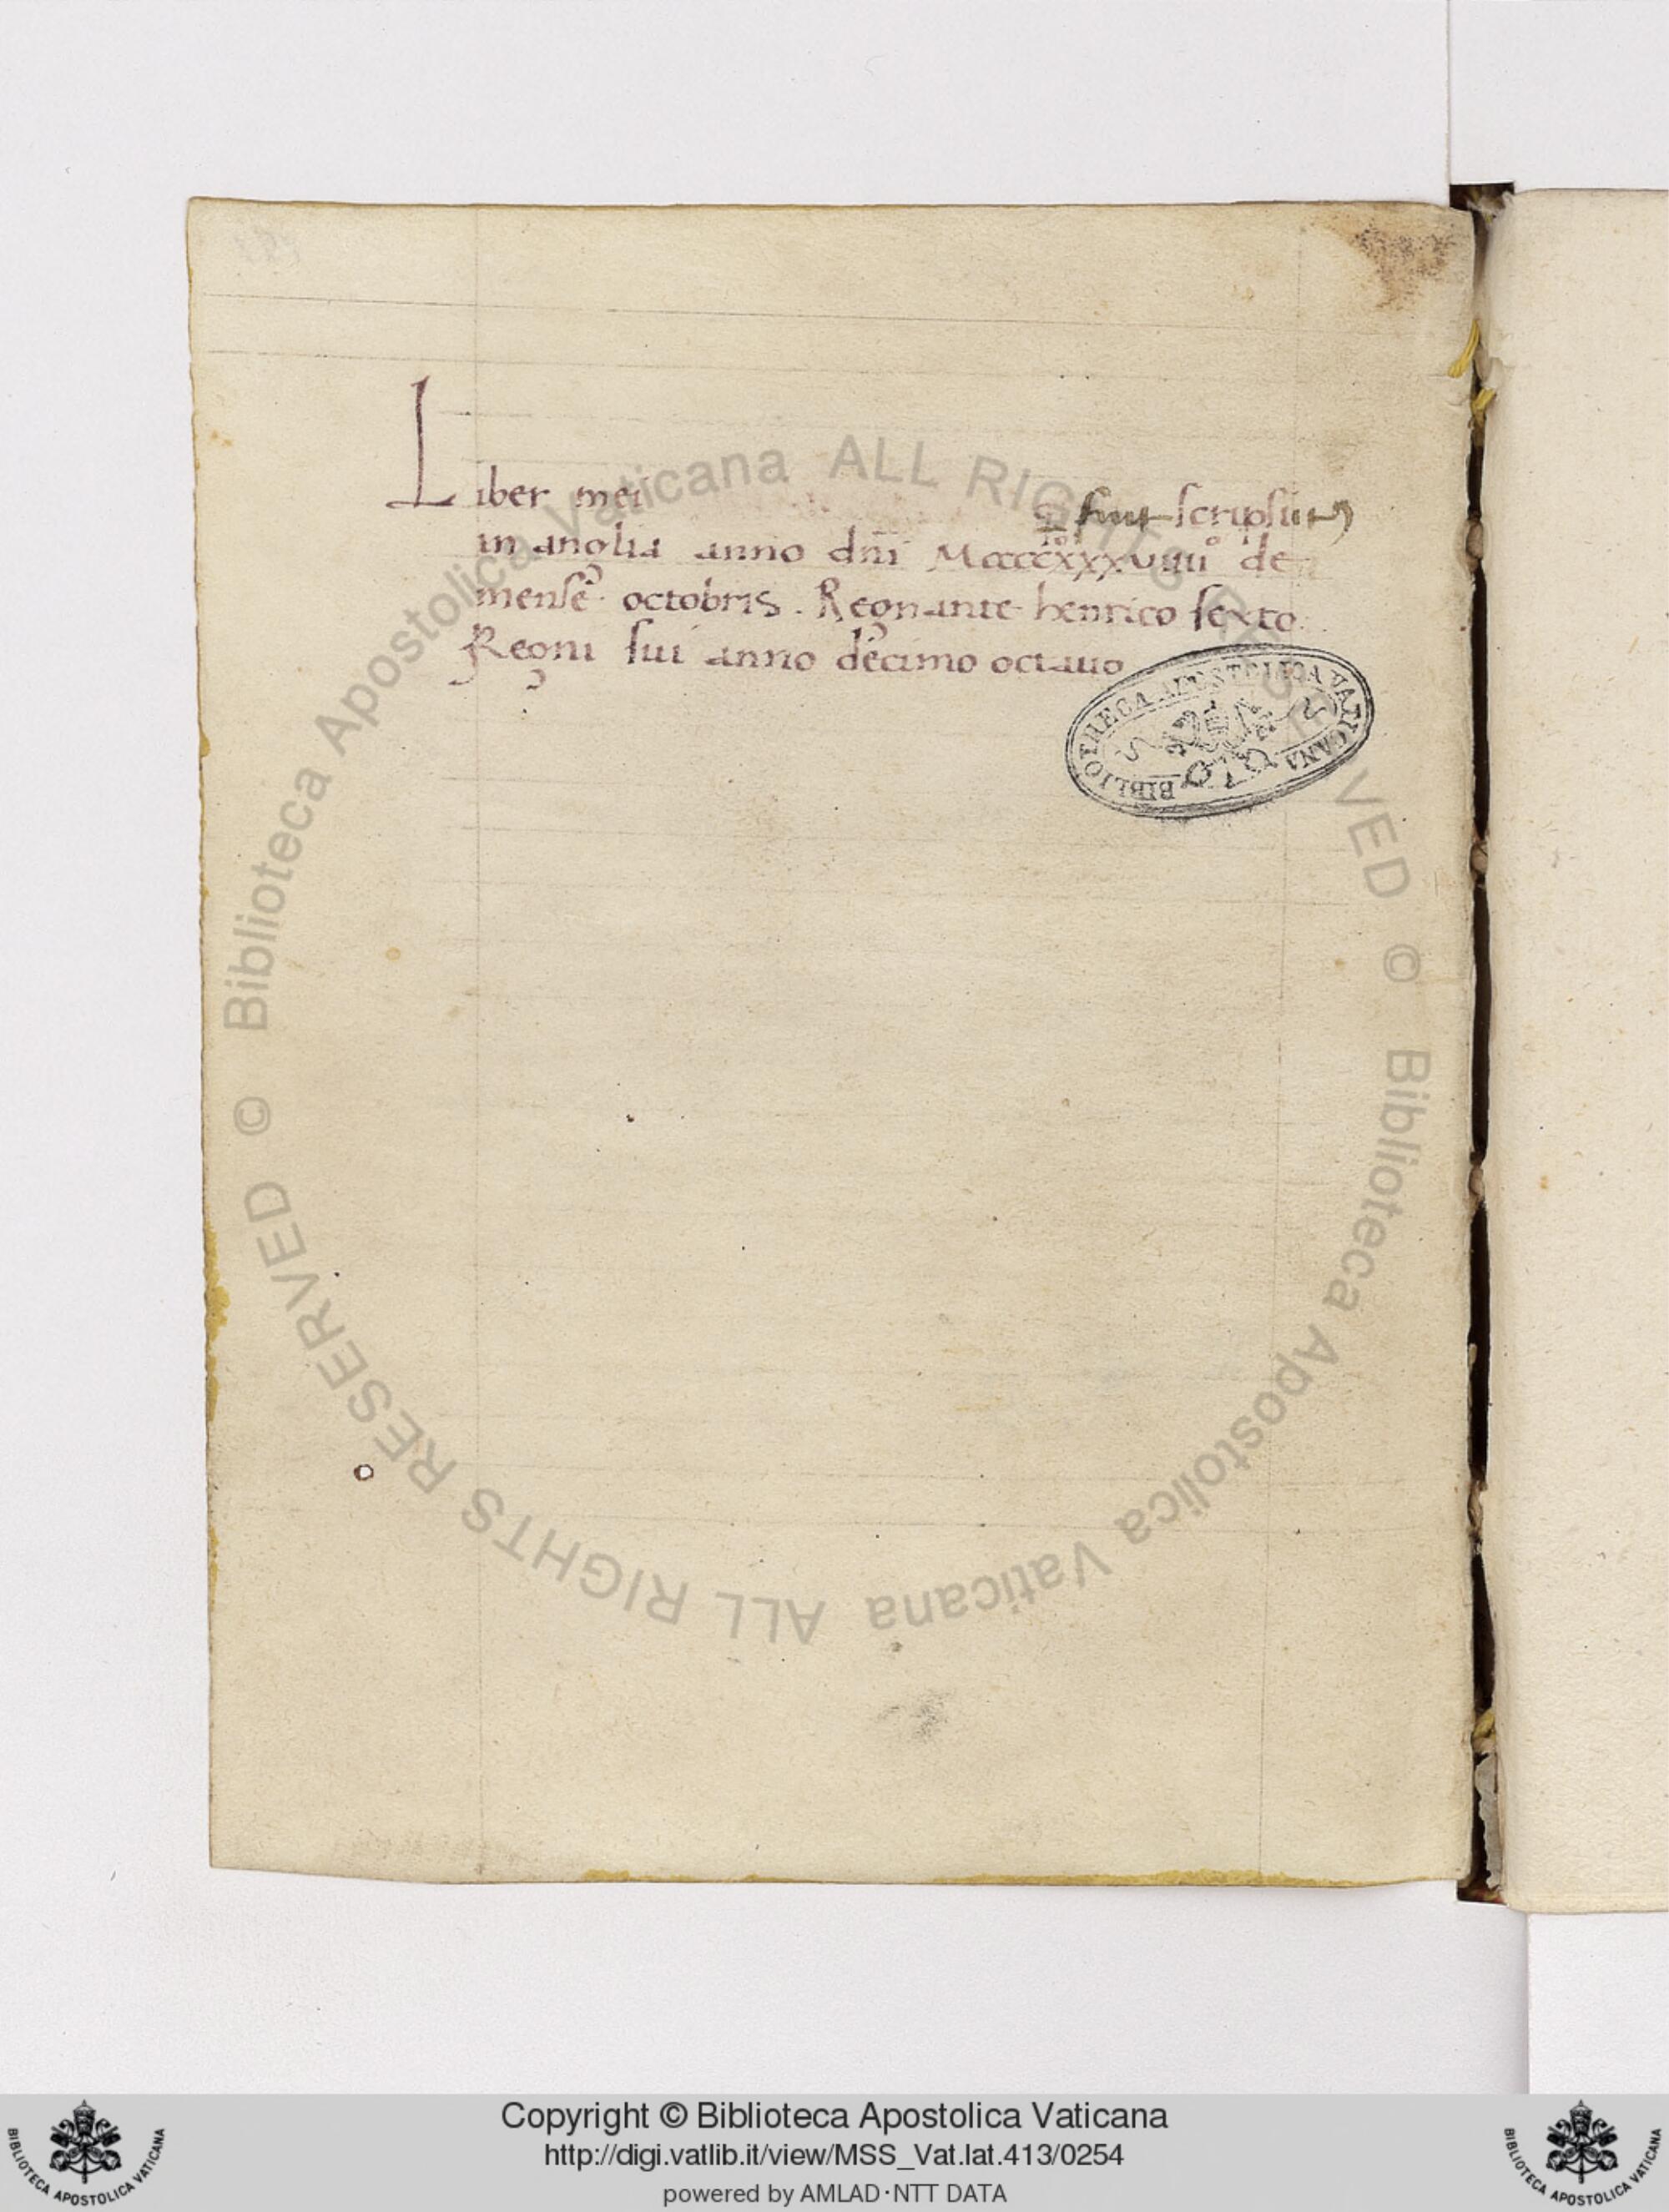 Liber mei qͥ fuit scriptus
in anglia anno dn̄i Mccccxxxviiiiº de
mense octobris. Regnante henrico sexto.
Regni sui anno decimo octauo
BIBLIOTHECA APOSTOLICA VATICANA
© Biblioteca Apostolica Vaticana ALL RIGHTS RESERVED © Biblioteca Apostolica Vaticana ALL RIGHTS RESERVED
Copyright © Biblioteca Apostolica Vaticana
http://digi.vatlib.it/view/MSS_Vat.lat.413/0254
powered by AMLAD·NTT DATA
BIBLIOTECA APOSTOLICA VATICANA
BIBLIOTECA APOSTOLICA VATICANA